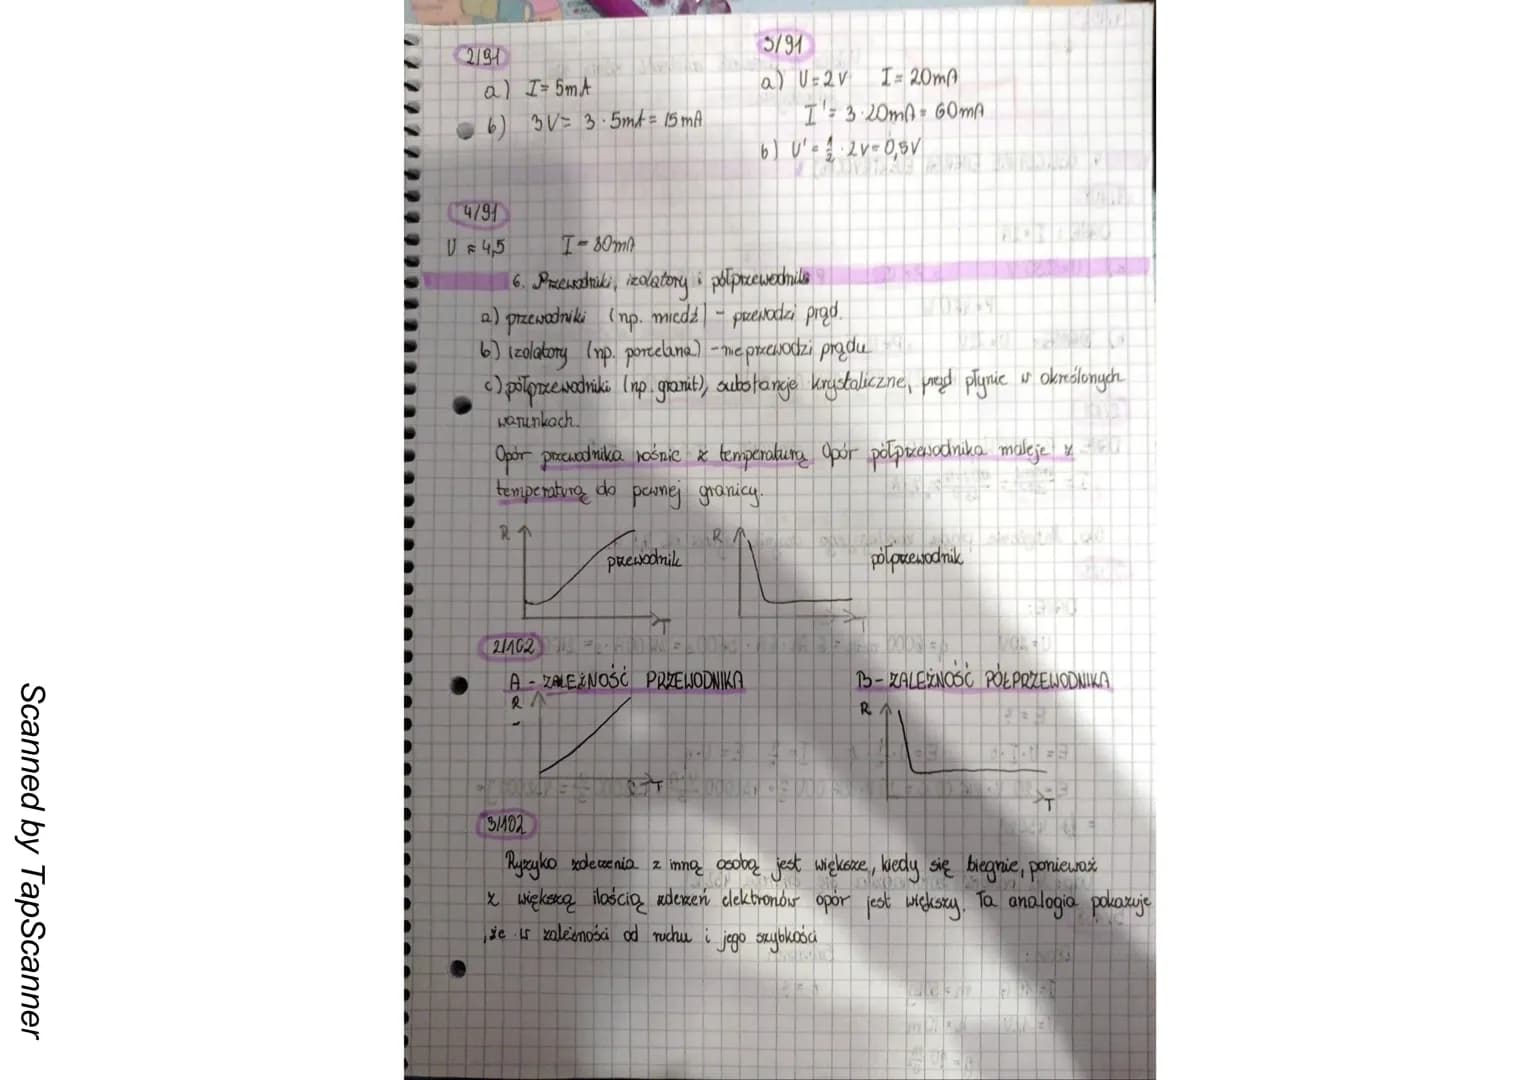 2/91
a) I= 5mA
b) 3V= 3·5mA= 15mA
3/91
a) U=2V I= 20mA
I'= 3·20mA= 60mA
b) U'= 1/2 ·2V=0,5V
4/91
U = 4,5 I= 80mA
6. Przewodniki, izolatory i półprzewodniki
a) przewodniki (np. miedź) - przewodzi prąd.
b) izolatory (np. porcelana) - nie przewodzi prądu
c) półprzewodniki (np. granit), substancje krystaliczne, prąd płynie w określonych
warunkach.
Opór przewodnika rośnie z temperaturą Opór półprzewodnika maleje z
temperaturą do pewnej granicy.
R przewodnik T
R półprzewodnik T
2/102
A - ZALEŻNOŚĆ PRZEWODNIKA
R T
B - ZALEŻNOŚĆ PÓŁPRZEWODNIKA
R T
3/102
Ryzyko zderzenia z inną osobą jest większe, kiedy się biegnie, ponieważ
z większą ilością zderzeń elektronów opór jest większy. Ta analogia pokazuje
,że w zależności od ruchu i jego szybkości
Scanned by TapScanner